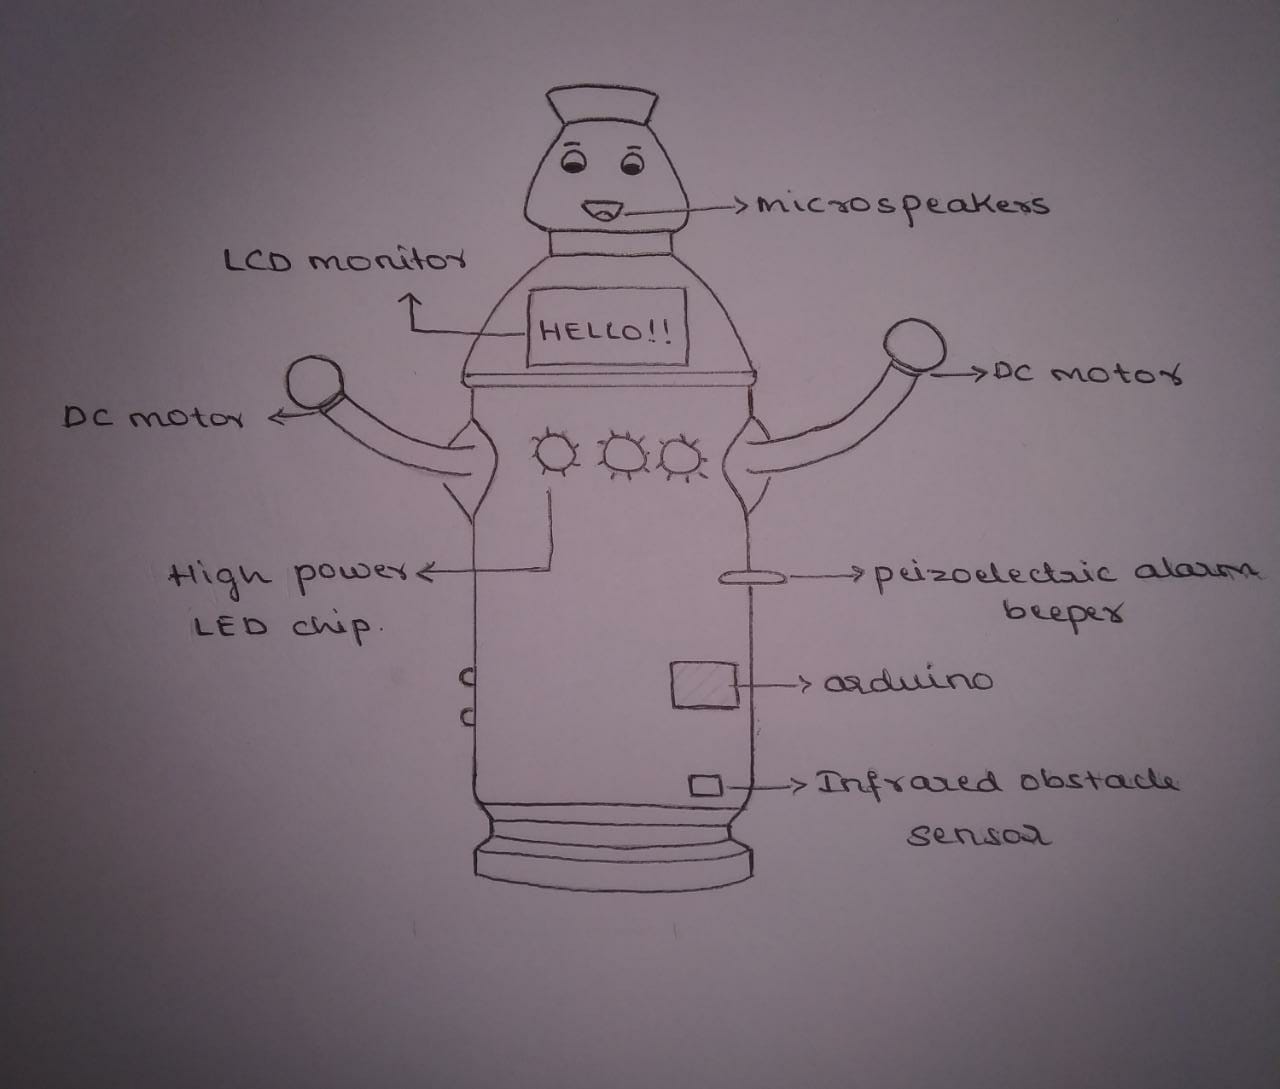 microspeakers
LCD monitor
HELLO!!
DC motor
DC motor
High power
LED chip.
peizoelectric alarm
beeper
arduino
Infrared obstacle
sensor